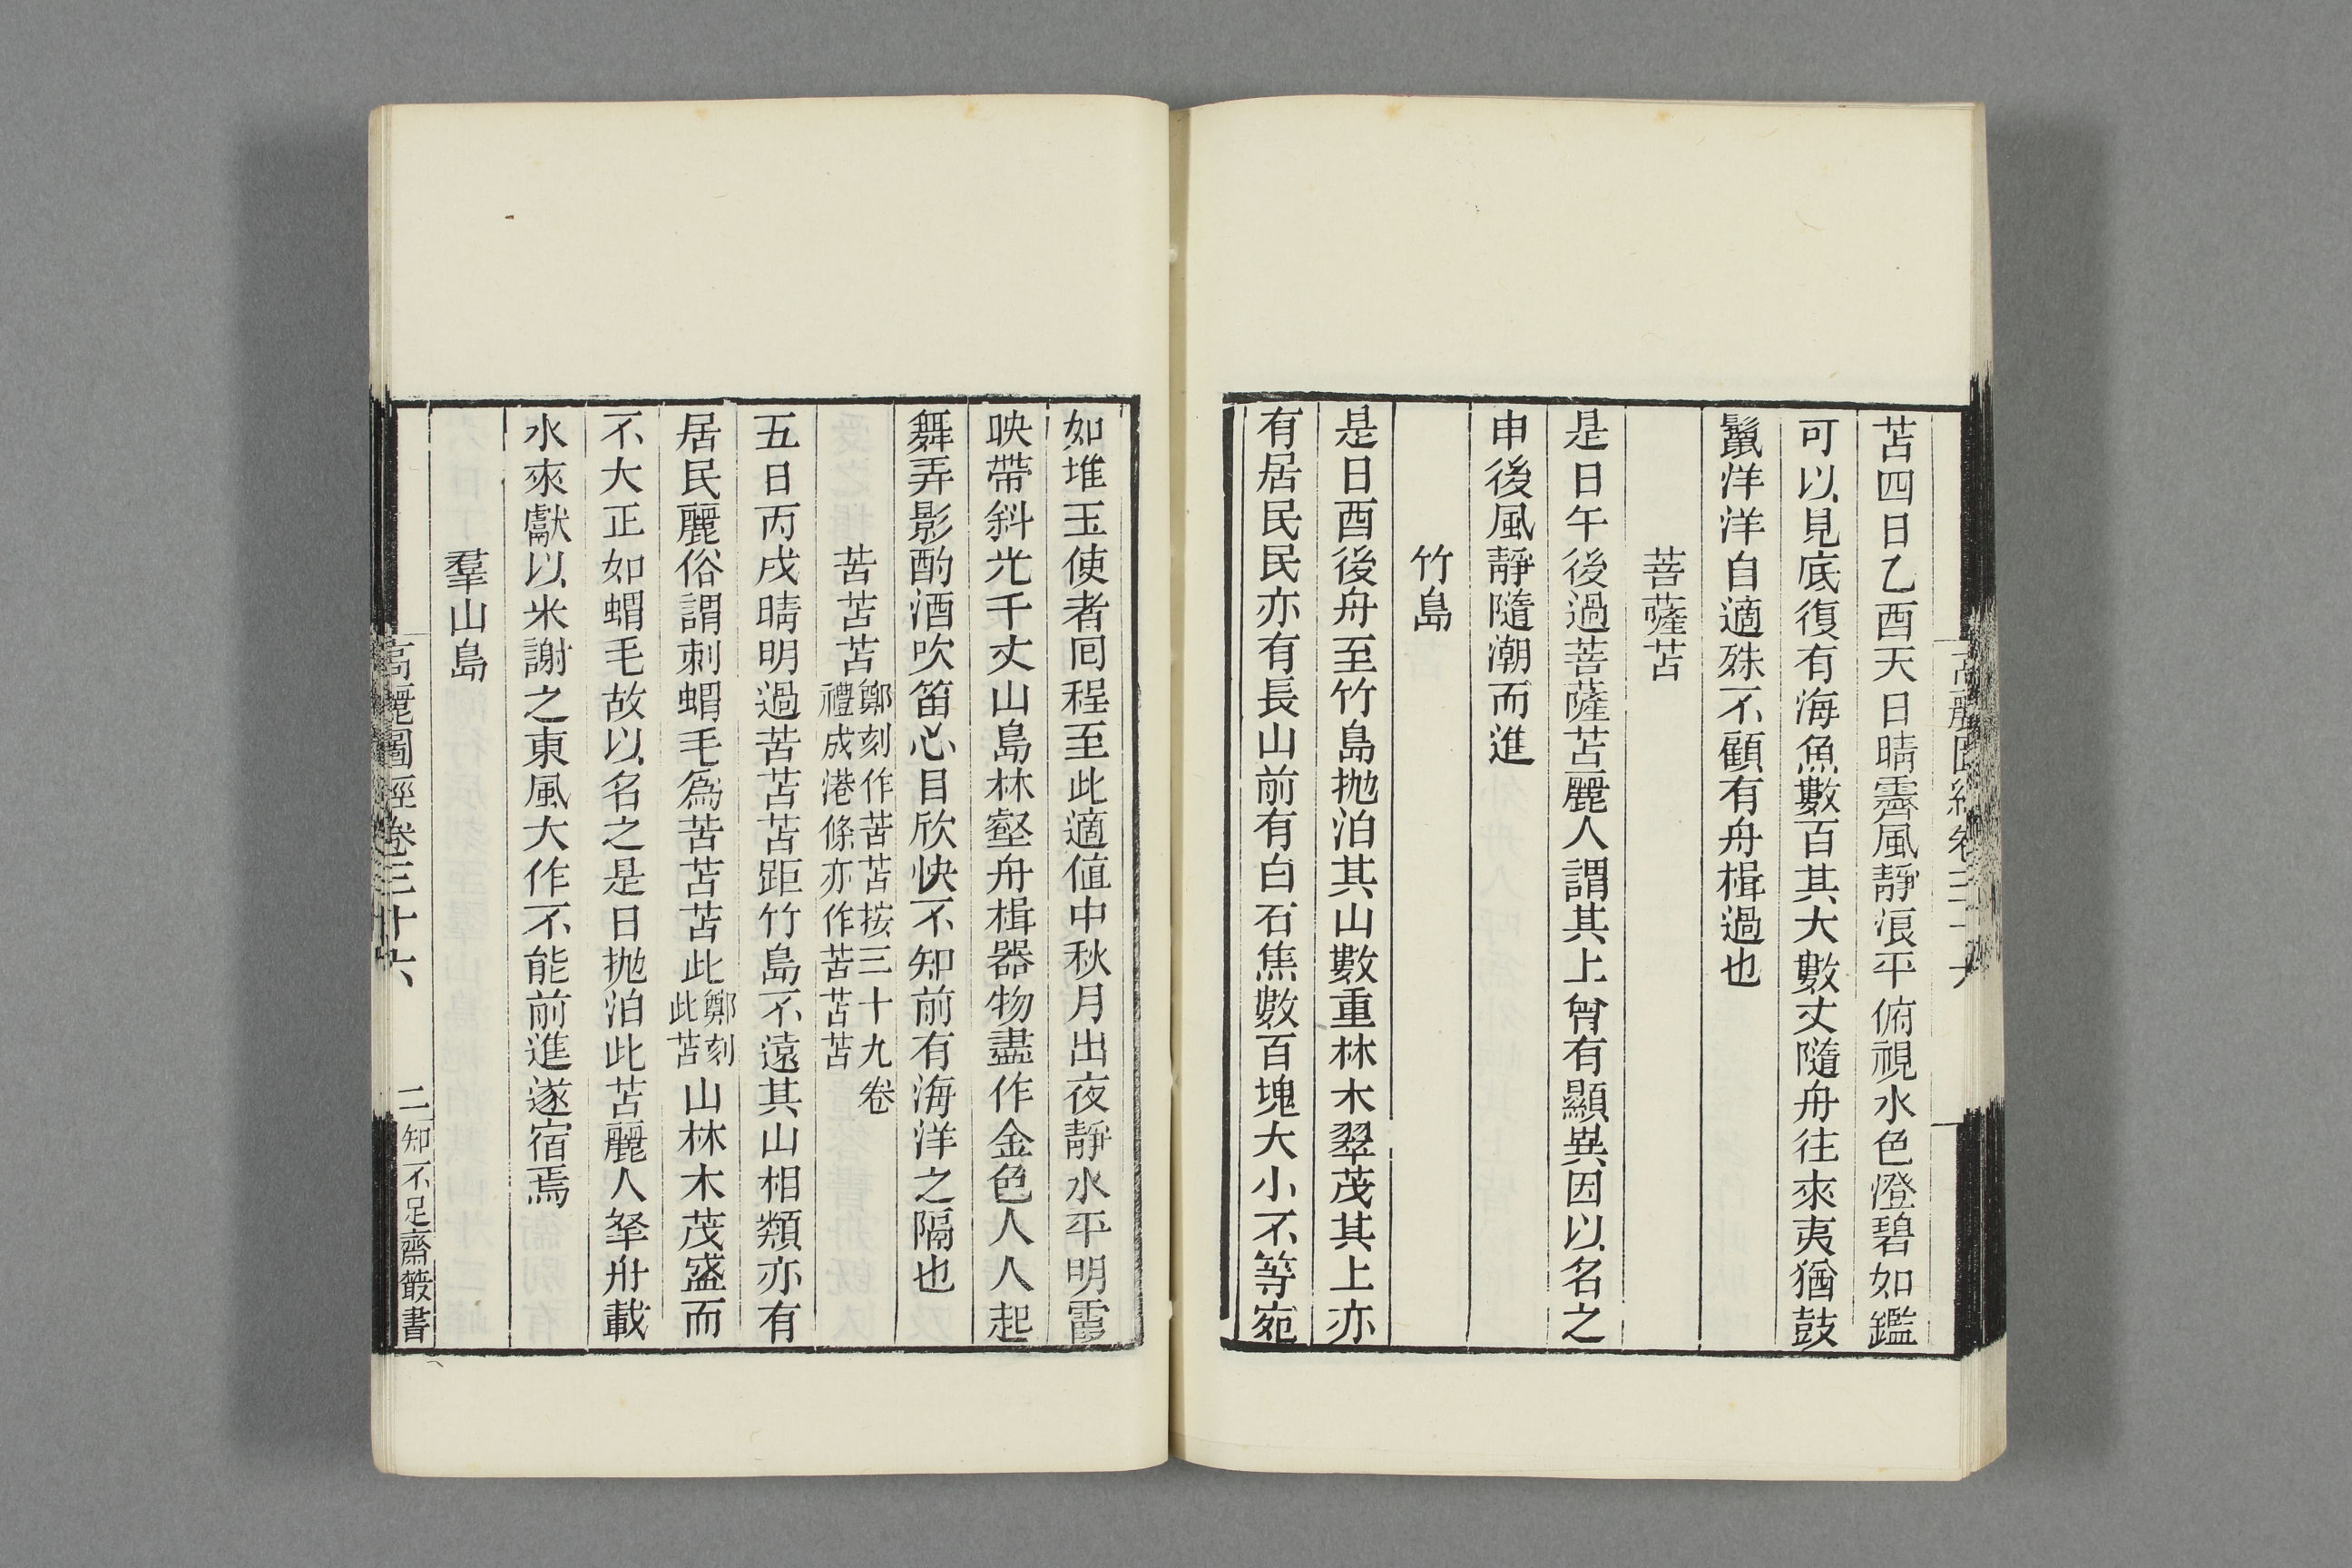 苫四日乙酉天日晴霽風靜浪平俯視水色澄碧如鑑
可以見底復有海魚數百其大數丈隨舟往來夷猶鼓
鬣洋洋自適殊不顧有舟楫過也
菩薩苫
是日午後過菩薩苫麗人謂其上曾有顯異因以名之
申後風靜隨潮而進
竹島
是日酉後舟至竹島抛泊其山數重林木翠茂其上亦
有居民民亦有長山前有白石焦數百塊大小不等宛
如堆玉使者回程至此適値中秋月出夜靜水平明霞
映帶斜光千丈山島林壑舟楫器物盡作金色人人起
舞弄影酌酒吹笛心目欣快不知前有海洋之隔也
苦苫苫鄭刻作苦苫按三十九卷
禮成港條亦作苦苫苫
五日丙戌晴明過苦苫苫距竹島不遠其山相類亦有
居民麗俗謂刺蝟毛爲苦苫苫此鄭刻
此苫山林木茂盛而
不大正如蝟毛故以名之是日抛泊此苫麗人拏舟載
水來獻以米謝之東風大作不能前進遂宿焉
羣山島
高麗圖經卷三十六
二
知不足齋叢書